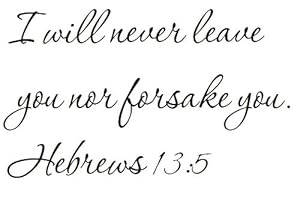 I will never leave
you nor forsake you.
Hebrews 13:5